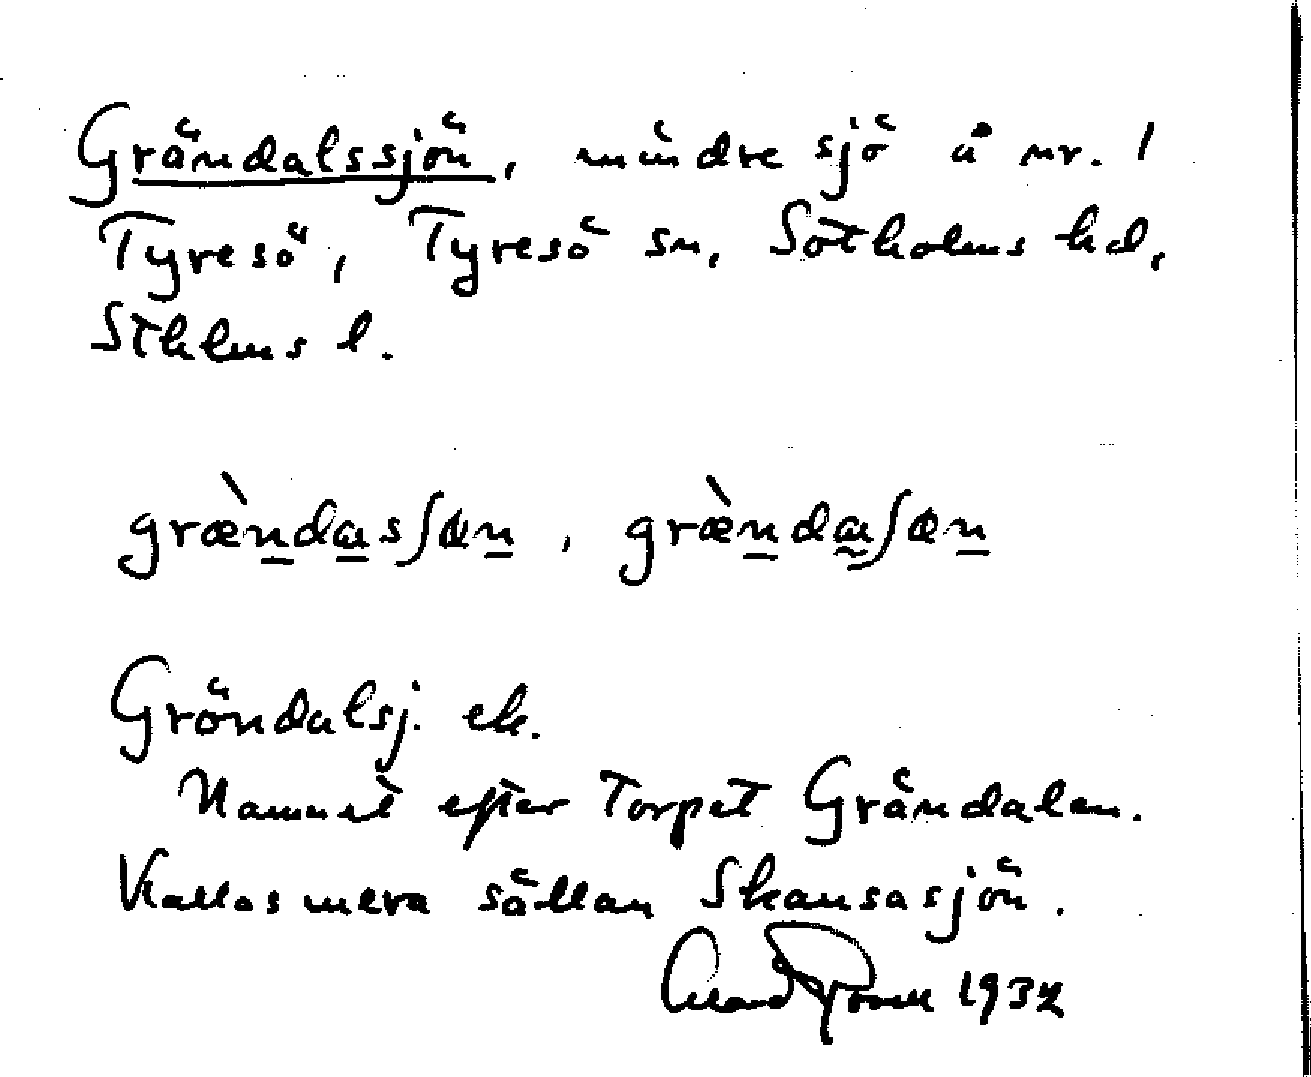 Grändalssjön, mindre sjö å nr. 1
Tyresö, Tyresö sn, Sotholms hd,
Sthlms l.
græ̀ndasʃøn, græ̀ndaʃøn
Gröndalsj. ek.
Namnet efter torpet Grändalen.
Kallas mera sällan Skansasjön.
1937